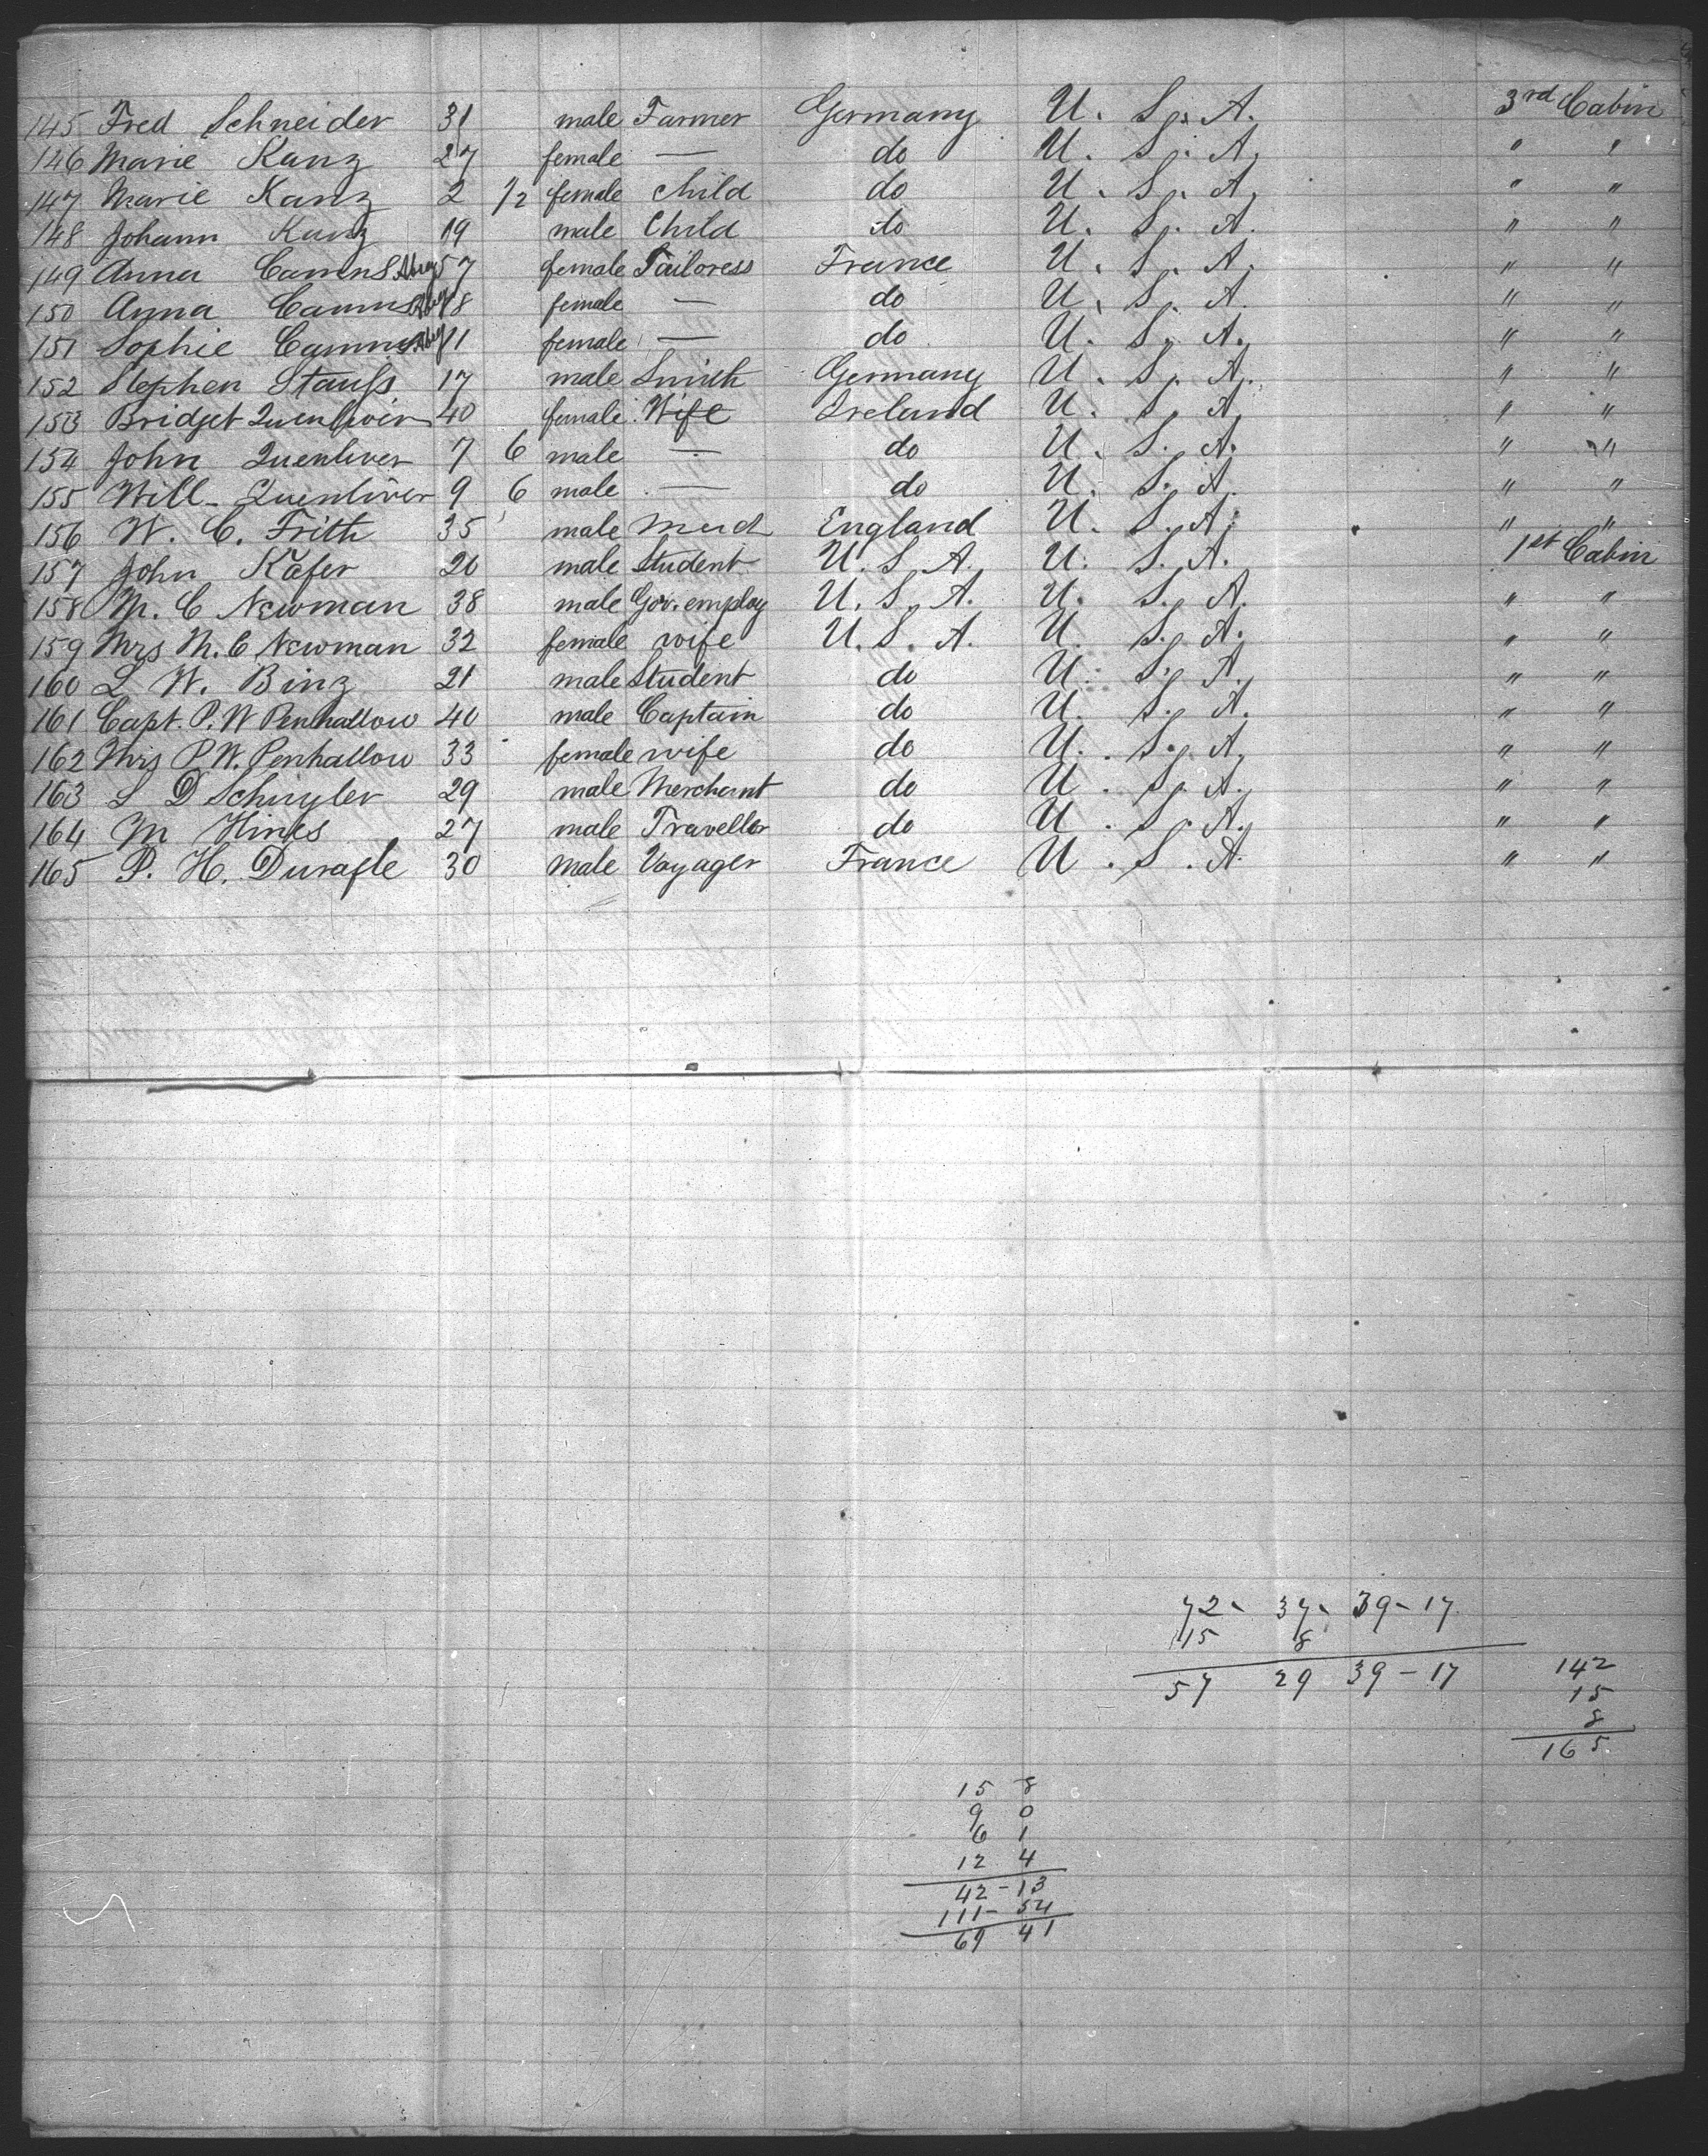 145 Fred Schneider 31 male Farmer Germany U. S. A. 3rd Cabin
146 Marie Kanz 27 female — do U. S. A. " "
147 Marie Kanz 2 1/2 female child do U. S. A. " "
148 Johann Kanz 19 male Child do U. S. A. " "
149 Anna 57 female Tailoress France U. S. A. " "
150 Anna 18 female — do U. S. A. " "
151 Sophie 11 female — do U. S. A. " "
152 Stephen Stauss 17 male Smith Germany U. S. A. " "
153 Bridget 40 female Wife Ireland U. S. A. " "
154 John Quenliver 7 6 male — do U. S. A. " "
155 Will. Quenliver 9 6 male — do U. S. A. " "
156 W. C. Frith 35 male England U. S. A. " "
157 John Kafer 20 male Student U. S. A. U. S. A. 1st Cabin
158 M. C Newman 38 male Gov. employ U. S. A. U. S. A. " "
159 Mrs M. C Newman 32 female wife U. S. A. U. S. A. " "
160 L W. Binz 21 male Student do U. S. A. " "
161 Capt. P. W Penhallow 40 male Captain do U. S. A. " "
162 Mrs P. W. Penhallow 33 female wife do U. S. A. " "
163 S D Schuyler 29 male Merchant do U. S. A. " "
164 M Hines 27 male Traveller do U. S. A. " "
165 P. H. Durafle 30 male Voyager France U. S. A. " "
72 - 37 - 39 - 17
15 8
57 29 39 - 17
142
15
8
165
15 8
9 0
6 1
12 4
42 - 13
111 - 54
69 41